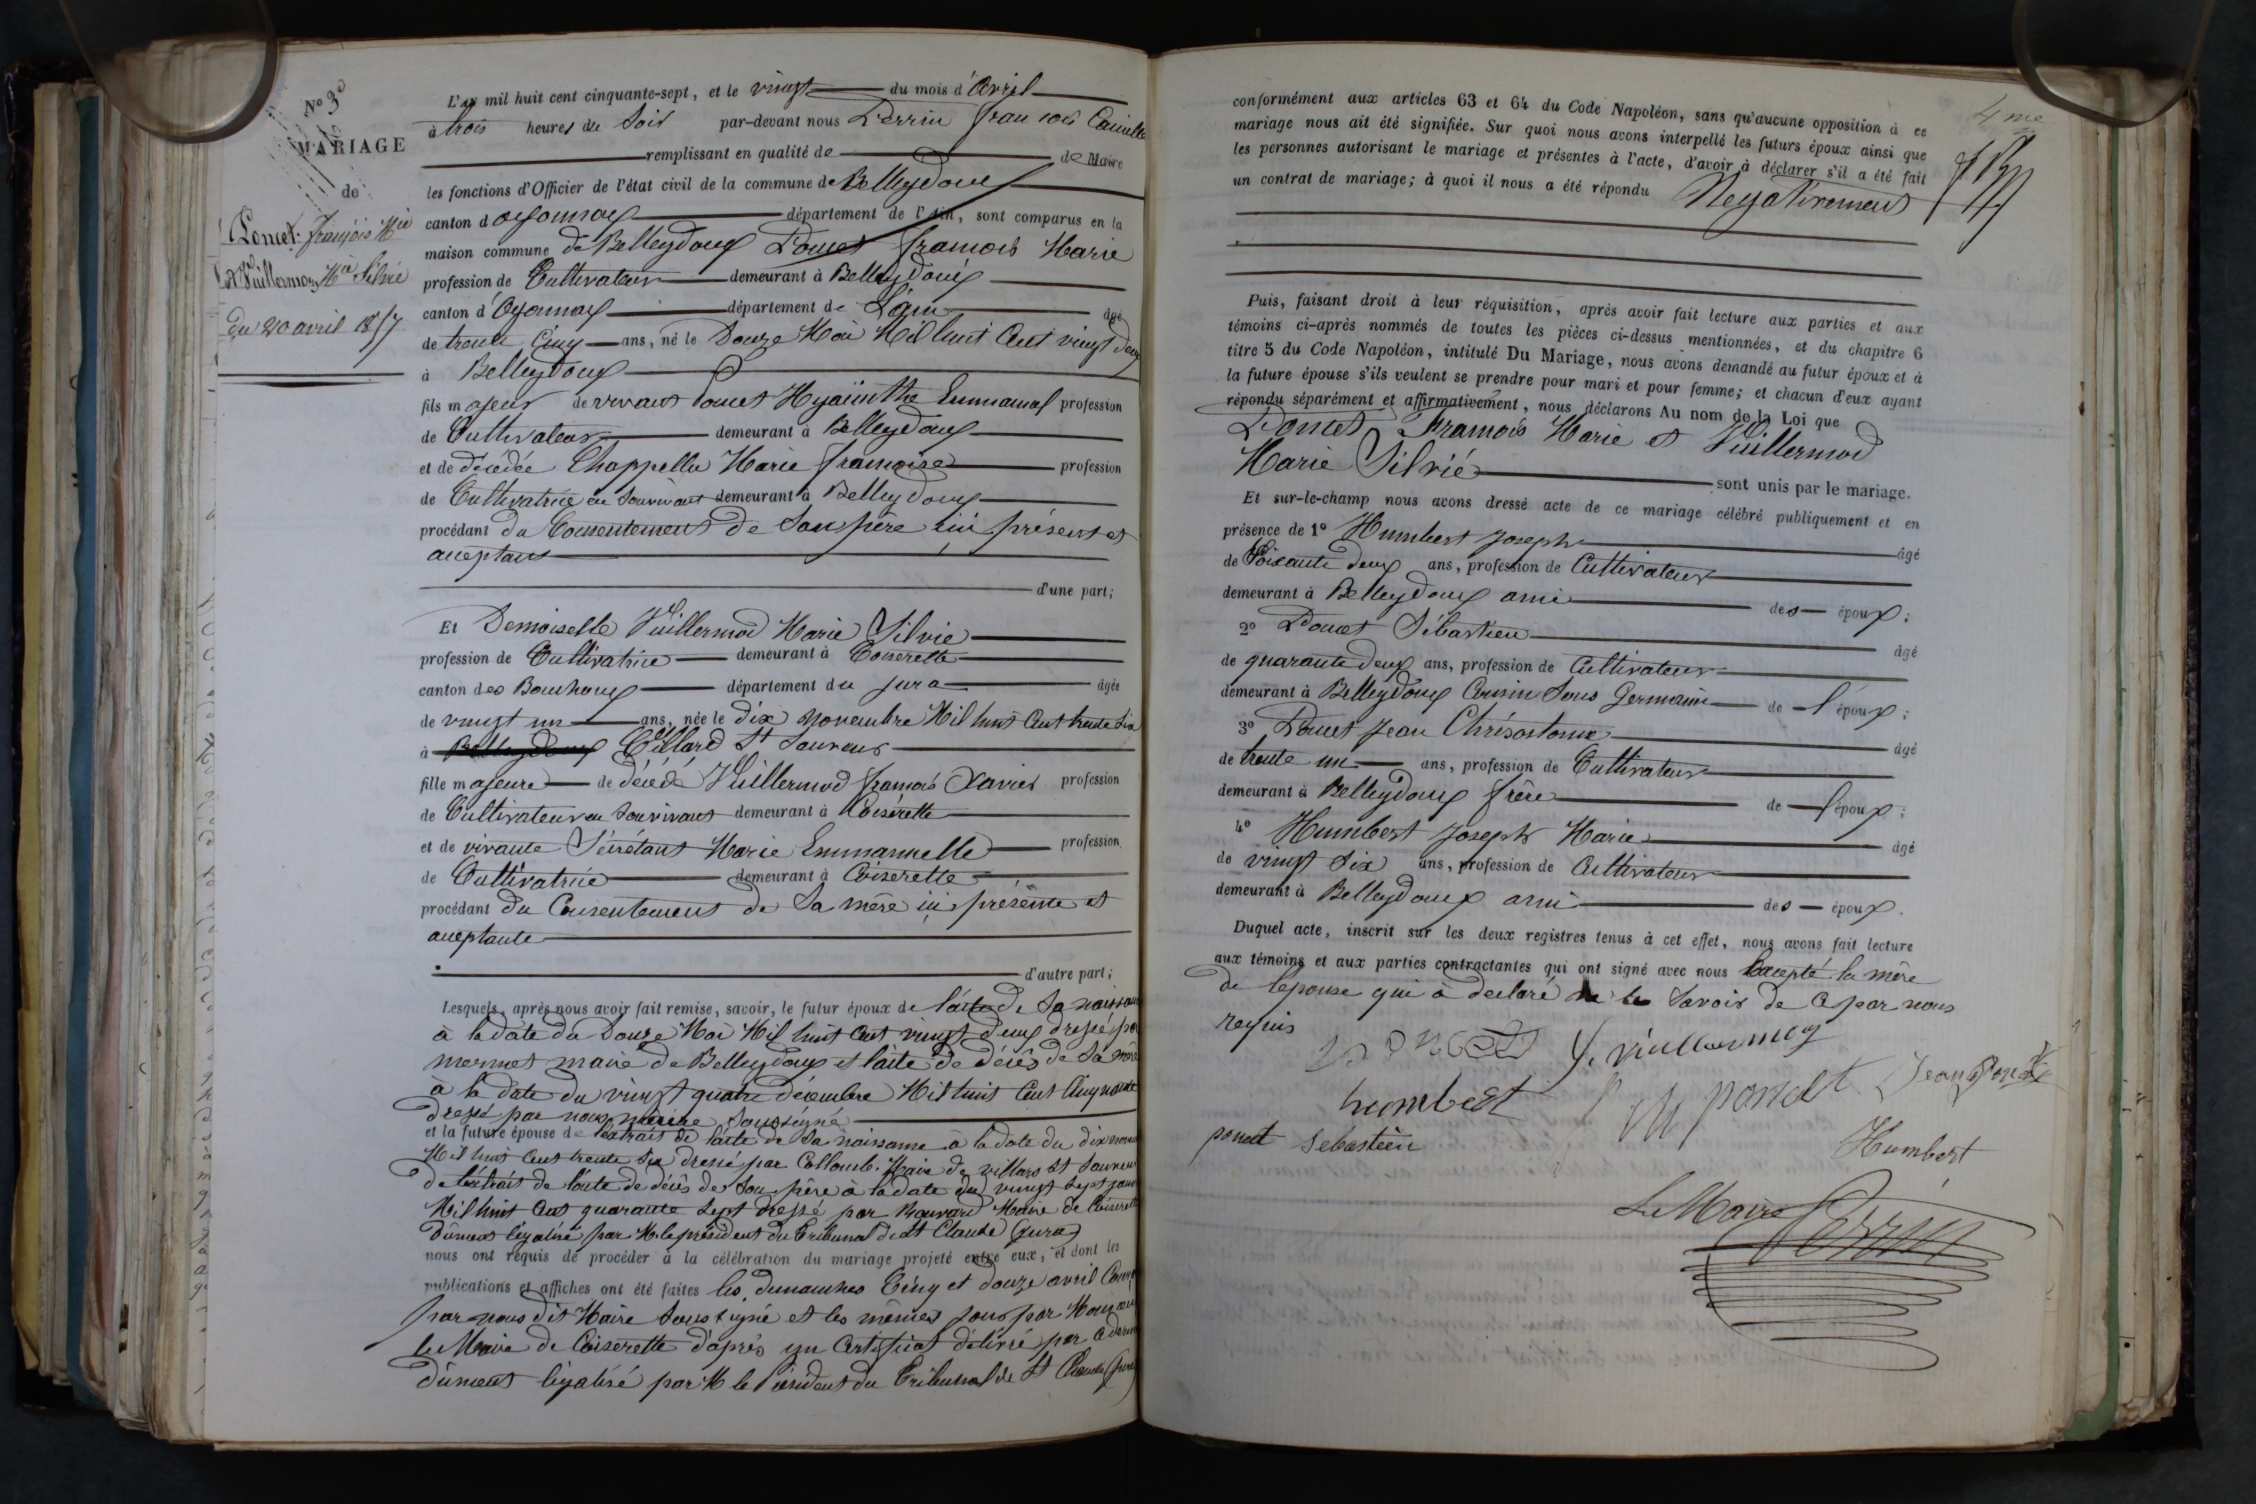 N° 3
MARIAGE
de
Poncet françois Mie
Et Vuillermoz Mie Silvie
du 20 avril 1857
L'an mil huit cent cinquante-sept, et le vingt du mois d'Avril
à trois heures du Soir par-devant nous Perrin françois Camille
remplissant en qualité de de Maire
les fonctions d'Officier de l'état civil de la commune de Belleydoux
canton d'oyonnax département de l'Ain, sont comparus en la
maison commune de Belleydoux Poncet françois Marie
profession de Cultivateur demeurant à Belleydoux
canton d'Oyonnax département de L'ain âgé
de trente Cinq ans, né le Douze Mai Mil huit Cent vingt deux
à Belleydoux
fils majeur de vivant Poncet Hyacinthe Emmanuel profession
de Cultivateur demeurant à Belleydoux
et de décédée Chappellu Marie françoise profession
de Cultivatrice en Sonvivant demeurant à Belleydoux
procédant du Consentement de Son père ici présent et
acceptant
d'une part;
Et Demoiselle Vuillermod Marie Silvie
profession de Cultivatrice demeurant à Coiserette
canton des Bouchoux département du jura âgée
de vingt un ans, née le dix Novembre Mil huit Cent trente Six
à Belleydoux Villard St Sauveur
fille majeure de décédé Vuillermod françois Xavier profession
de Cultivateur en Sonvivant demeurant à Coiserette
et de vivante Sécrétant Marie Emmannuelle profession
de Cultivatrice demeurant à Coiserette
procédant du Consentement de Sa mère ici présente et
acceptante
d'autre part;
Lesquels, après nous avoir fait remise, savoir, le futur époux de l'acte de Sa naissance
à la date du Douze Mai Mil huit Cent vingt deux dressé par
mermet maire de Belleydoux et l'acte de décès de Sa mère
à la date du vingt quatre décembre Mil huit Cent Cinquante
dressé par nous maire Soussigné
et la future épouse de l'extrait de l'acte de Sa naissance à la date du dix nov
Mil huit Cent trente Six dressé par Collomb Maire de villars St Sauveur
de l'extrait de l'acte de décès de Son père à la date du vingt Sept
Mil huit Cent quarante Sept dressé par Maire de Coiserette
dûment légalisé par M. le président du Tribunal de St Claude (Jura)
nous ont requis de procéder à la célébration du mariage projeté entre eux, et dont les
publications et affiches ont été faites les dimanches Cinq et douze avril
par nous dit Maire Soussigné et les mêmes jours par
le Maire de Coiserette d'après un Certificat délivré par Ce dernier
dûment légalisé par M le Président du Tribunal de St Claude (Jura)
4me
conformément aux articles 63 et 64 du Code Napoléon, sans qu'aucune opposition à ce
mariage nous ait été signifiée. Sur quoi nous avons interpellé les futurs époux ainsi que
les personnes autorisant le mariage et présentes à l'acte, d'avoir à déclarer s'il a été fait
un contrat de mariage; à quoi il nous a été répondu Négativement
Puis, faisant droit à leur réquisition, après avoir fait lecture aux parties et aux
témoins ci-après nommés de toutes les pièces ci-dessus mentionnées, et du chapitre 6
titre 5 du Code Napoléon, intitulé Du Mariage, nous avons demandé au futur époux et à
la future épouse s'ils veulent se prendre pour mari et pour femme; et chacun d'eux ayant
répondu séparément et affirmativement, nous déclarons Au nom de la Loi que
Poncet François Marie et Vuillermod
Marie Silvie sont unis par le mariage.
Et sur-le-champ nous avons dressé acte de ce mariage célébré publiquement et en
présence de 1° Humbert joseph âgé
de Soixante deux ans, profession de Cultivateur
demeurant à Belleydoux ami des époux;
2° Poncet Sébastien âgé
de quarante deux ans, profession de Cultivateur
demeurant à Belleydoux Cousin Sous Germain de l'époux;
3° Poncet Jean Chrisostome âgé
de trente un ans, profession de Cultivateur
demeurant à Belleydoux frère de l'époux;
4° Humbert joseph Marie âgé
de vingt Six ans, profession de Cultivateur
demeurant à Belleydoux ami des époux.
Duquel acte, inscrit sur les deux registres tenus à cet effet, nous avons fait lecture
aux témoins et aux parties contractantes qui ont signé avec nous Excepté la mère
de l'epouse qui à declaré ne le Savoir de Ce par nous
requis
poncet S. viullermoz
humbert fm poncet Jean Poncet
poncet Sébastien Humbert
Le Maire Perrin